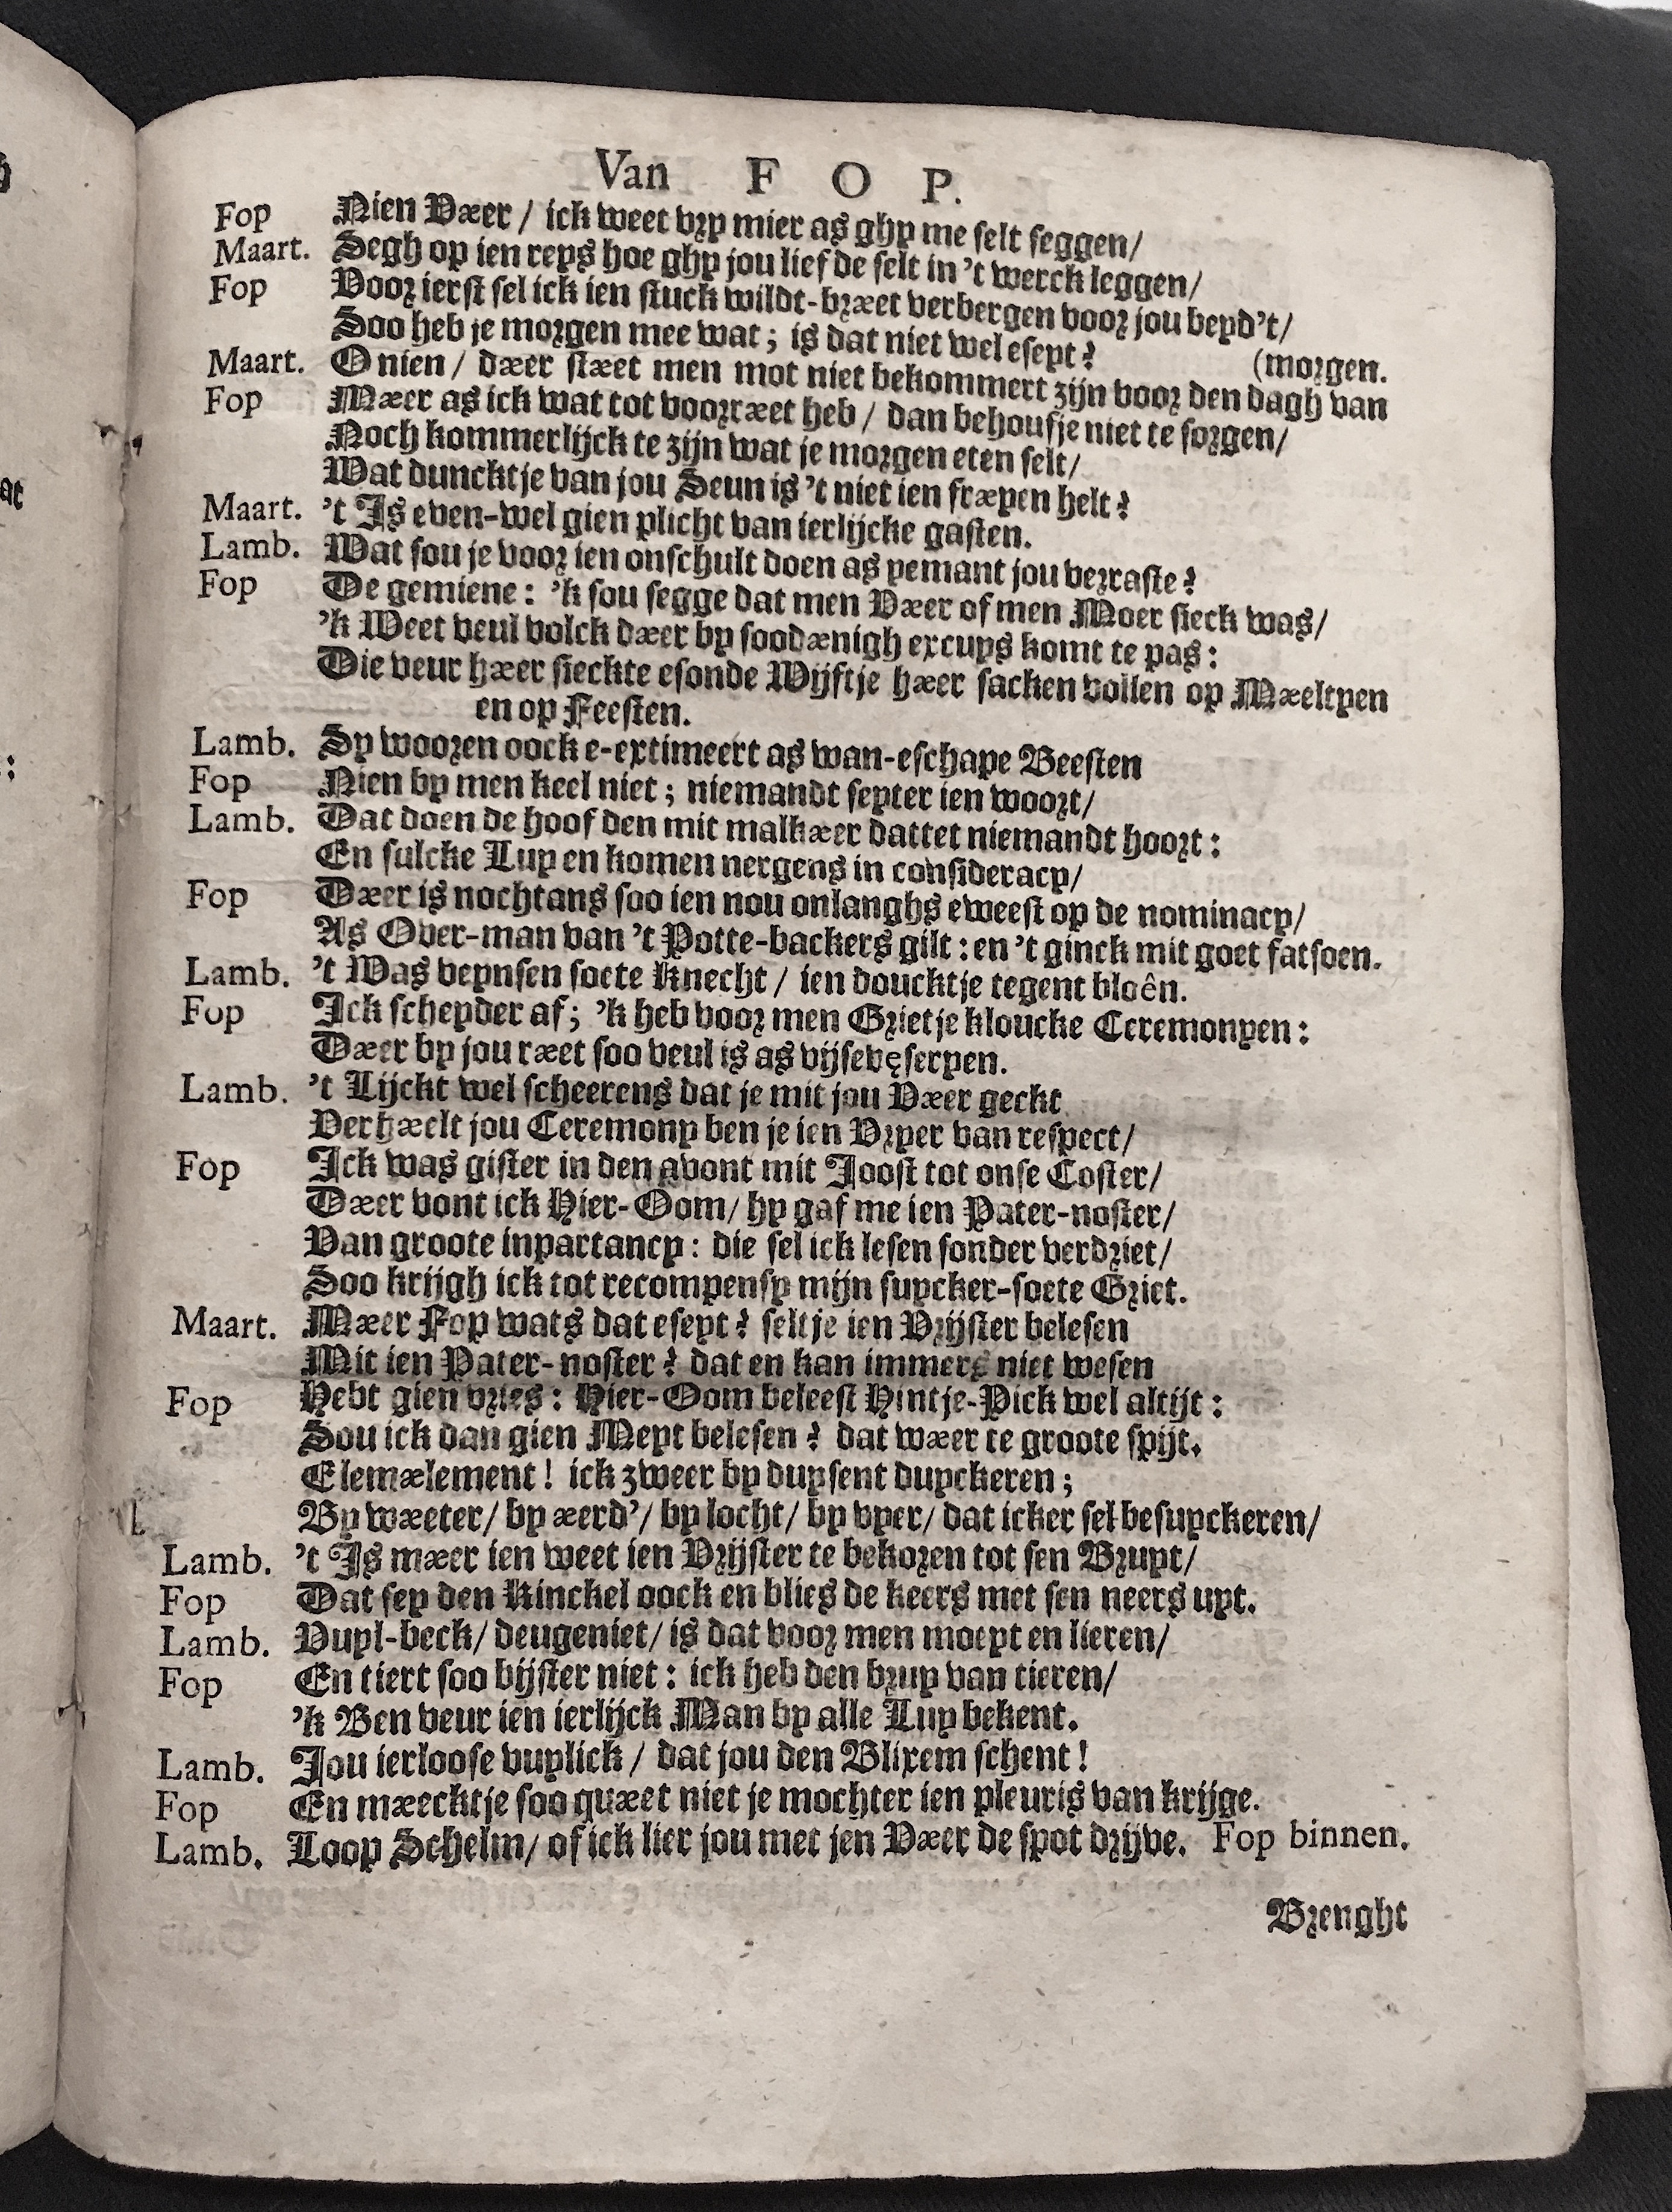 Van F O P.
Fop Nien Væer / ick weet vry mier as ghy me selt seggen/
Maart. Segh op ien reys hoe ghy jou liefde selt in 't werck leggen/
Fop Voor ierst sel ick ien stuck wildt-bræet verbergen voor jou beyd't/
Soo heb je morgen mee wat; is dat niet wel eseyt? (morgen.
Maart. O nien / dæer stæet men mot niet bekommert zijn voor den dagh van
Fop Mæer as ick wat tot voorræet heb / dan behoufje niet te sorgen/
Noch kommerlijck te zijn wat je morgen eten selt/
Wat duncktje van jou Seun is 't niet ien fræyen helt?
Maart. 't Is even-wel gien plicht van ierlijcke gasten.
Lamb. Wat sou je voor ien onschult doen as yemant jou verraste?
Fop De gemiene: 'k sou segge dat men Væer of men Moer sieck was/
'k Weet veul volck dæer by soodænigh excuys komt te pas:
Die veur hæer sieckte esonde Wijftje hæer sacken vollen op Mæeltyen
en op Feesten.
Lamb. Sy wooren oock e-extimeert as wan-eschape Beesten
Fop Nien by men keel niet; niemandt seyter ien woort/
Lamb. Dat doen de hoofden mit malkæer dattet niemandt hoort:
En sulcke Luy en komen nergens in consideracy/
Fop Dæer is nochtans soo ien nou onlanghs eweest op de nominacy/
As Over-man van 't Potte-backers gilt: en 't ginck mit goet fatsoen.
Lamb. 't Was veynsen soete Knecht / ien doucktje tegent bloên.
Fop Ick scheyder af; 'k heb voor men Grietje kloucke Ceremonyen:
Dæer by jou ræet soo veul is as vijsevęseryen.
Lamb. 't Lijckt wel scheerens dat je mit jou Væer geckt
Verhæelt jou Ceremony ben je ien Vryer van respect/
Fop Ick was gister in den avont mit Joost tot onse Coster/
Dæer vont ick Hier-Oom/ hy gaf me ien Pater-noster/
Van groote inpartancy: die sel ick lesen sonder verdriet/
Soo krijgh ick tot recompensy mijn suycker-soete Griet.
Maart. Mæer Fop wats dat eseyt? seltje ien Vrijster belesen
Mit ien Pater-noster? dat en kan immers niet wesen
Fop Hebt gien vries: Hier-Oom beleest Hintje-Pick wel altijt:
Sou ick dan gien Meyt belesen? dat wæer te groote spijt.
Elemælement! ick zweer by duysent duyckeren;
By wæeter/ by æerd'/ by locht/ by vyer/ dat icker sel besuyckeren/
Lamb. 't Is mæer ien weet ien Vrijster te bekoren tot sen Bruyt/
Fop Dat sey den Kinckel oock en blies de keers met sen neers uyt.
Lamb. Vuyl-beck/ deugeniet/ is dat voor men moeyt en lieren/
Fop En tiert soo bijster niet: ick heb den bruy van tieren/
'k Ben veur ien ierlijck Man by alle Luy bekent.
Lamb. Jou ierloose vuylick / dat jou den Blixem schent!
Fop En mæecktje soo quæet niet je mochter ien pleuris van krijge.
Lamb. Loop Schelm/ of ick lier jou met jen Væer de spot drijve. Fop binnen.
Brenght